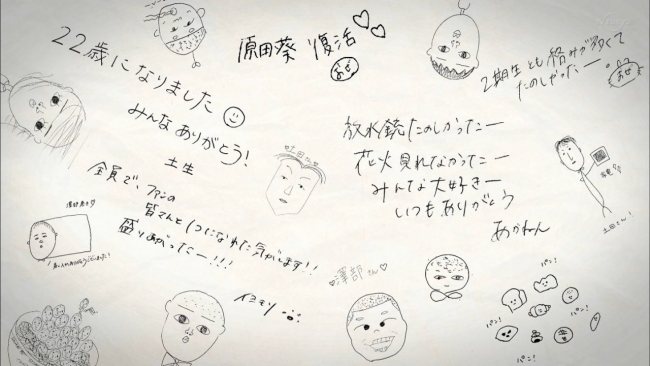 22歳になりました
みんなありがとう!
土生
原田葵 復活
おぜ
2期生とも絡みが多くて
たのしかったー。
おぜ
土田さん
放水銃たのしかったー
花火見れなかったー
みんな大好きー
いつもありがとう
あかねん
全員で、ファンの
皆さんと1つになれた気がします!!
盛りあがったー!!!
土田さん!
澤部さん
イモリ
パン!
パン!
パン!
パン!